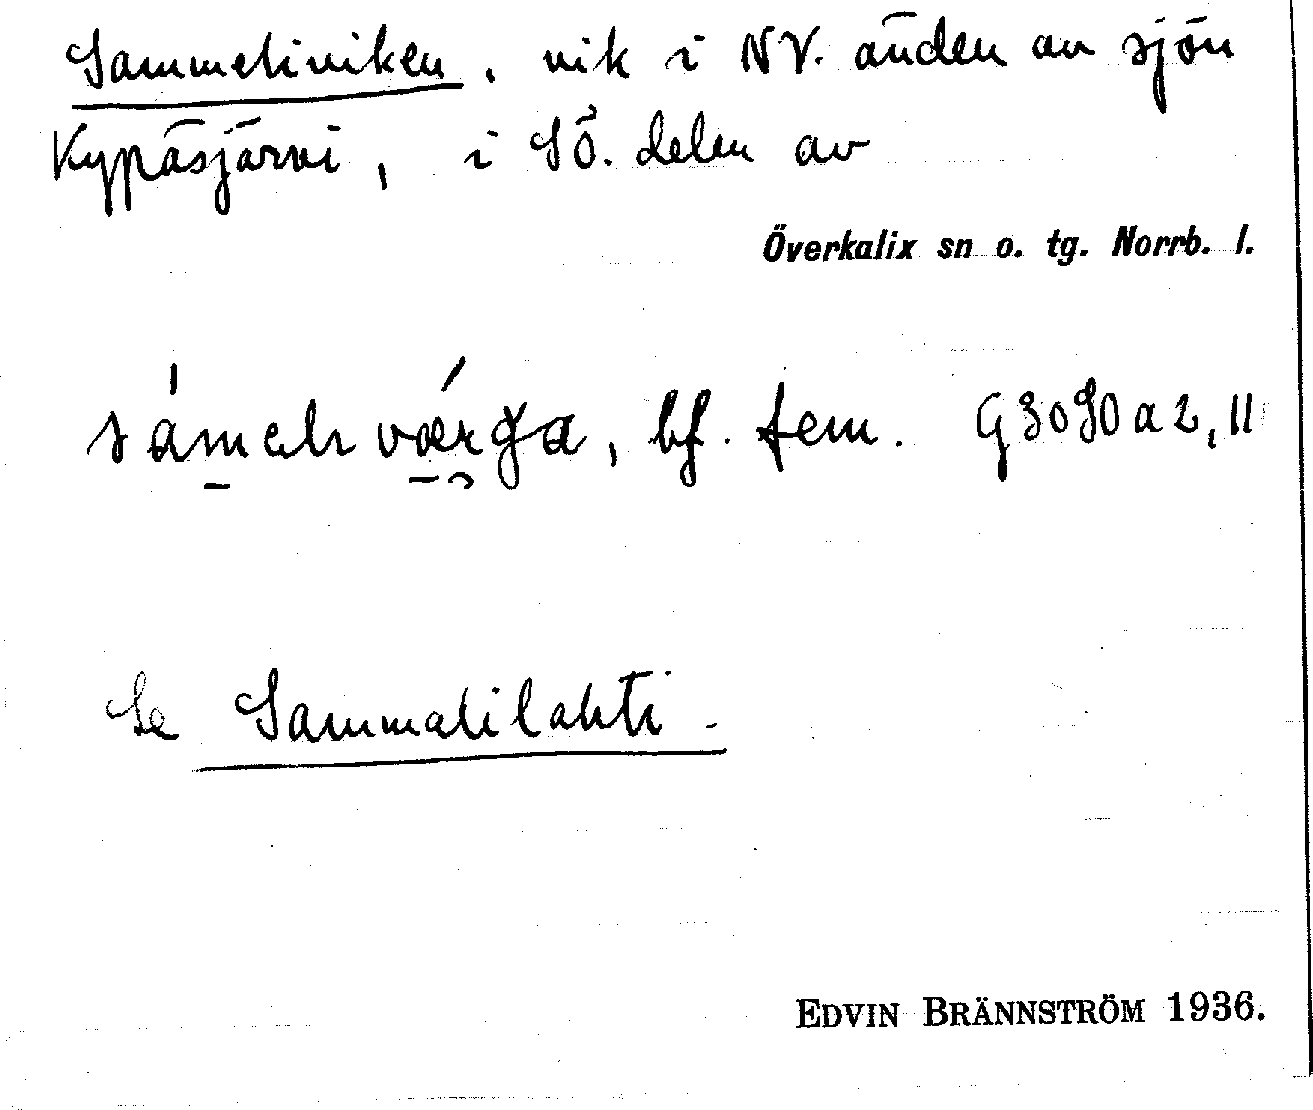 Sammeliviken, vik i NV. änden av sjön
Kypäsjärvi, i SÖ. delen av
Överkalix sn o. tg. Norrb. l.
bf. fem.
Se Sammalilahti.
EDVIN BRÄNNSTRÖM 1936.